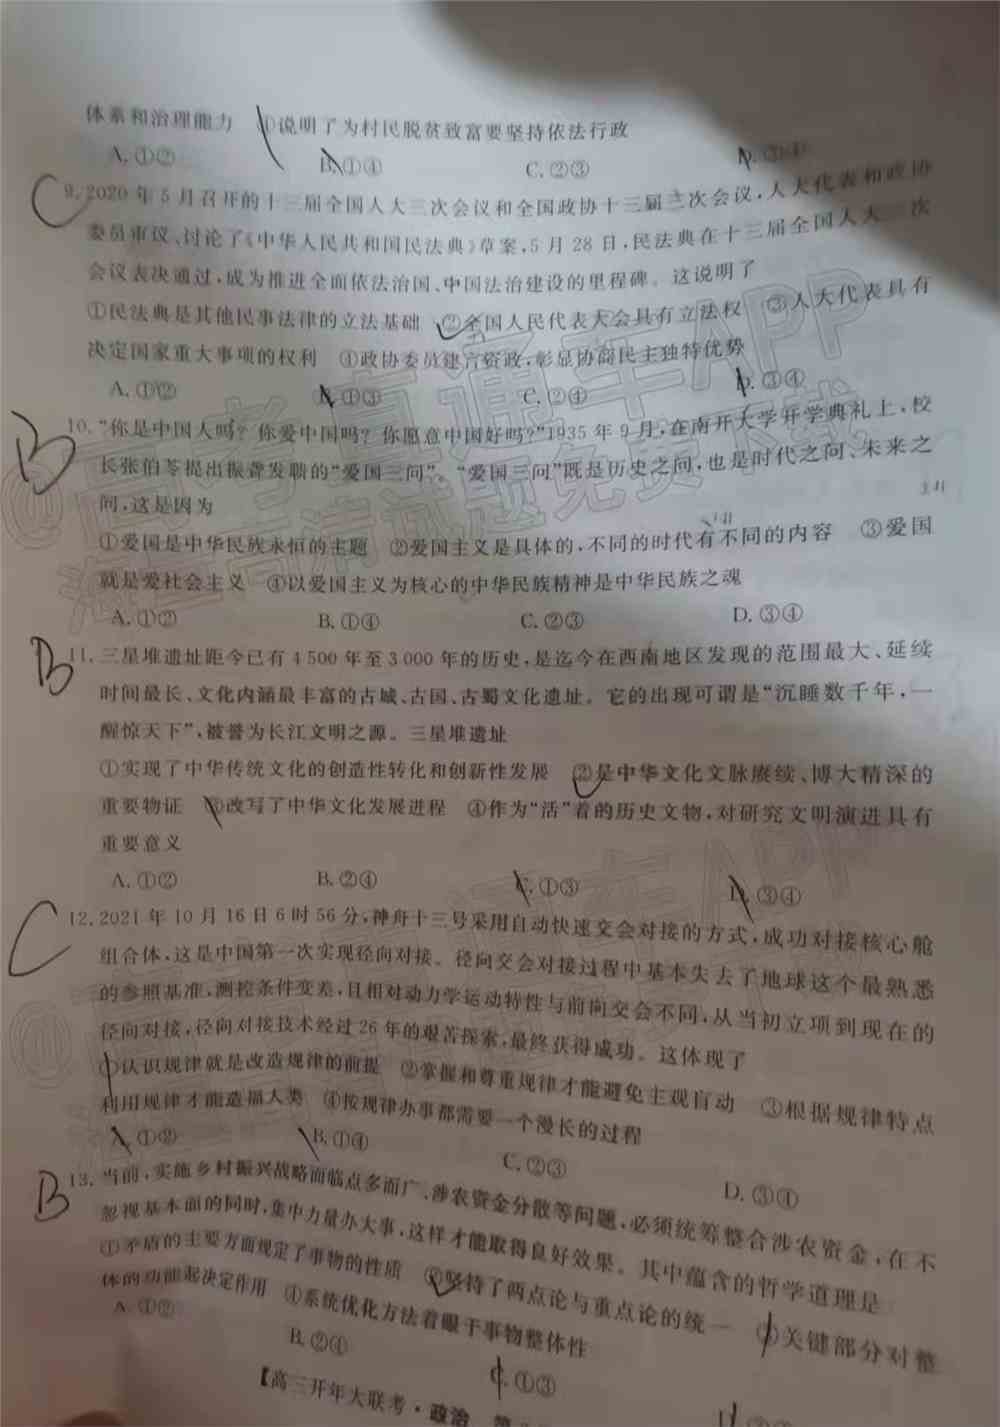 体系和治理能力 ④说明了为村民脱贫致富要坚持依法行政
A.①② B.①④ C.②③ D.③④
C
9.2020年5月召开的十三届全国人大三次会议和全国政协十三届三次会议,人大代表和政协
委员审议、讨论了《中华人民共和国民法典》草案,5月28日,民法典在十三届全国人大三次
会议表决通过,成为推进全面依法治国、中国法治建设的里程碑。这说明了
①民法典是其他民事法律的立法基础 ②全国人民代表大会具有立法权 ③人大代表具有
决定国家重大事项的权利 ④政协委员建言资政,彰显协商民主独特优势
A.①② B.①③ C.②④ D.③④
B
10.“你是中国人吗?你爱中国吗?你愿意中国好吗?”1935年9月,在南开大学开学典礼上,校
长张伯苓提出振聋发聩的“爱国三问”。“爱国三问”既是历史之问,也是时代之问、未来之
问,这是因为
①爱国是中华民族永恒的主题 ②爱国主义是具体的,不同的时代有不同的内容 ③爱国
就是爱社会主义 ④以爱国主义为核心的中华民族精神是中华民族之魂
A.①② B.①④ C.②③ D.③④
B
11.三星堆遗址距今已有4500年至3000年的历史,是迄今在西南地区发现的范围最大、延续
时间最长、文化内涵最丰富的古城、古国、古蜀文化遗址。它的出现可谓是“沉睡数千年,一
醒惊天下”,被誉为长江文明之源。三星堆遗址
①实现了中华传统文化的创造性转化和创新性发展 ②是中华文化文脉赓续、博大精深的
重要物证 ③改写了中华文化发展进程 ④作为“活”着的历史文物,对研究文明演进具有
重要意义
A.①② B.②④ C.①③ D.③④
C
12.2021年10月16日6时56分,神舟十三号采用自动快速交会对接的方式,成功对接核心舱
组合体,这是中国第一次实现径向对接。径向交会对接过程中基本失去了地球这个最熟悉
的参照基准,测控条件变差,且相对动力学运动特性与前向交会不同,从当初立项到现在的
径向对接,径向对接技术经过26年的艰苦探索,最终获得成功。这体现了
①认识规律就是改造规律的前提 ②掌握和尊重规律才能避免主观盲动 ③根据规律特点
利用规律才能造福人类 ④按规律办事都需要一个漫长的过程
A.①② B.①④ C.②③ D.③④
B
13.当前,实施乡村振兴战略面临点多面广、涉农资金分散等问题,必须统筹整合涉农资金,在不
忽视基本面的同时,集中力量办大事,这样才能取得良好效果。其中蕴含的哲学道理是
①矛盾的主要方面规定了事物的性质 ②坚持了两点论与重点论的统一 ③关键部分对整
体的功能起决定作用 ④系统优化方法着眼于事物整体性
A.①② B.②④ C.①③
【高三开年大联考·政治 第
@高考直通车APP
海量高清试题免费下载